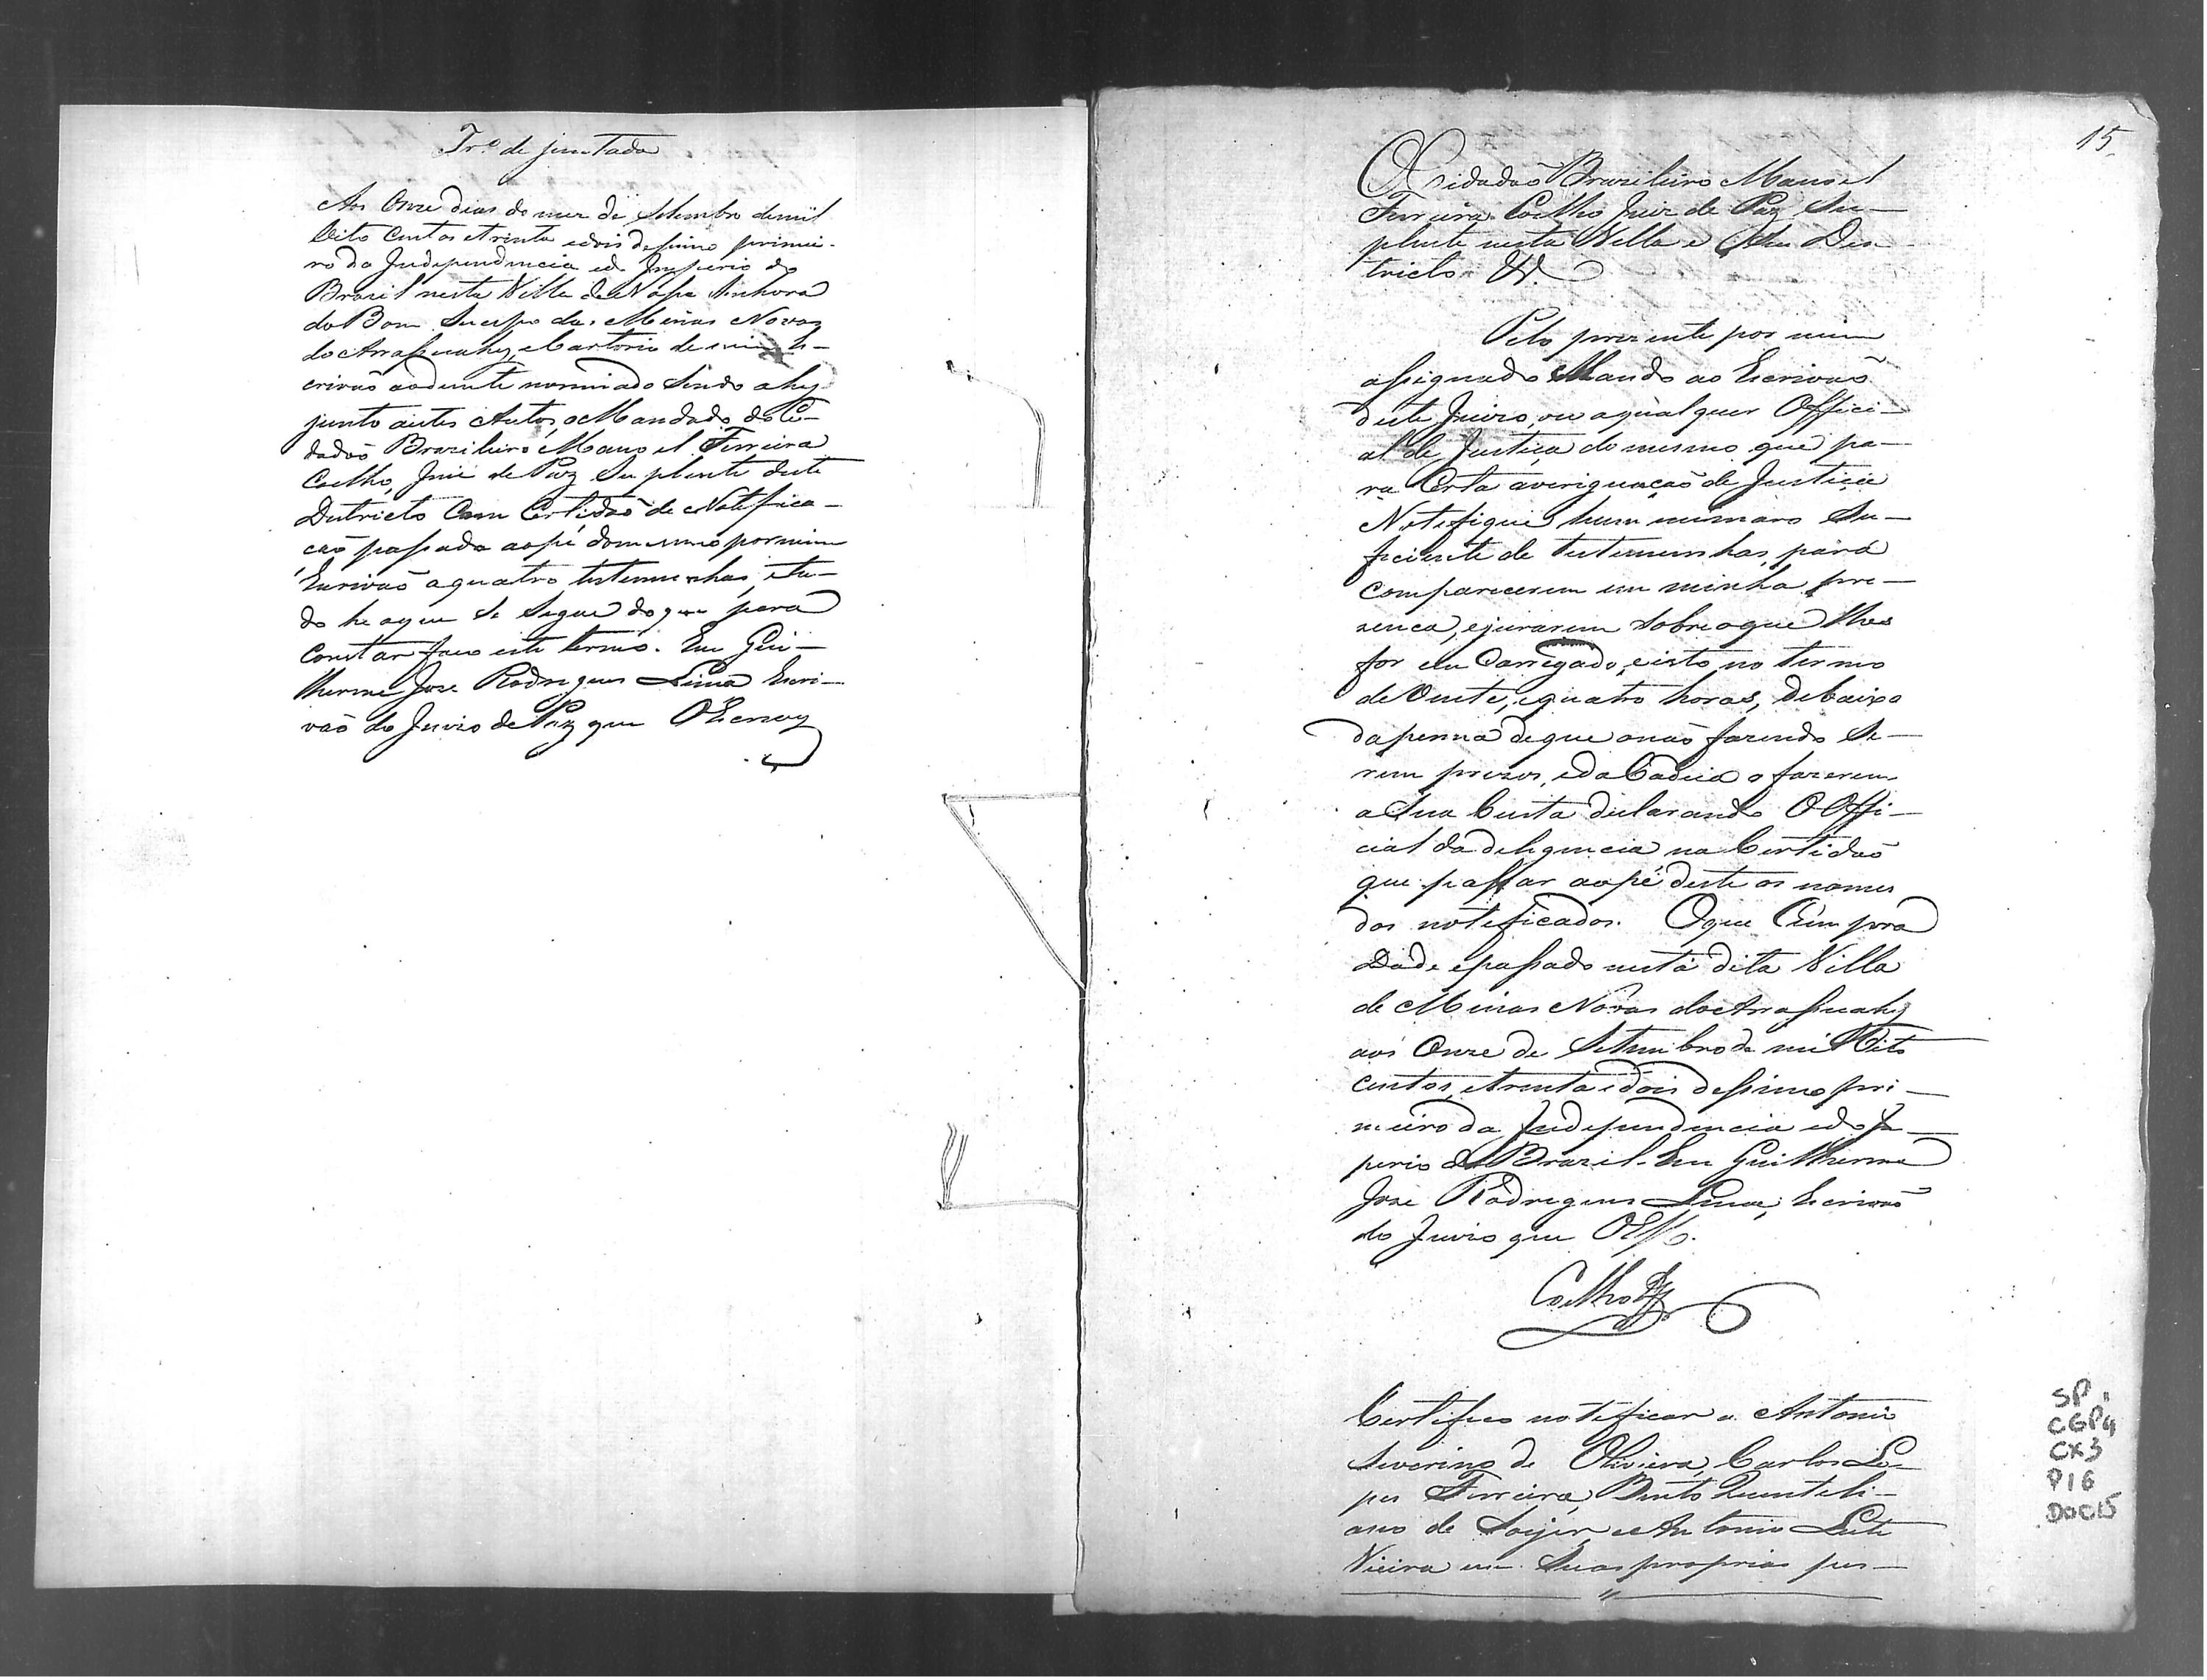 Tr.º de juntada
Aos Onze dias do mez de Setembro demil
Oito Centos etrinta edois desimo primei-
ro da Independencia edo Imperio do
Brazil nesta Villa de Nossa Senhora
do Bom Sucesso das Minas Novas
do Arassuahy, eCartorio de mim Es-
crivaõ aodiante nomiado Sendo ahy
junto aestes Autos, oMandado do Ci-
dadaõ Brazileiro Manoel Ferreira
Coelho, Juiz de Paz Suplente deste
Destricto Com Certidaõ de Notifica-
çaõ passada aopé domesmo pormim
Escrivaõ aquatro testemunhas, etu-
do he aque Se Segue doque para
Constar faço este termo. Eu Gui-
lherme Joze Rodrigues Lima Escri-
vaõ do Juizo de Paz que OEscrevy
15
O Cidadaõ Brazileiro Manoel
Ferreira Coelho Juiz de Paz Su-
plente nesta Villa e Seu Des-
tricto &.
Pelo prezente por mim
assignado Mando ao Escrivaõ
deste Juizo, ou aqualquer Offici-
al de Justiça do mesmo que pa-
ra Certa averiguaçaõ de Justiça
Notifique hum numaro Su-
ficiente de testemunhas, para
Comparecerem em minha pre-
zenca, ejurarem Sobre oque lhes
for em Carregado, eisto no termo
de Vinte, equatro horas, debaixo
dapenna deque onaõ fazendo Se-
rem prezos, eda Cadeia o fazerem
a Sua Custa declarando OOffi-
cial da deligencia na Certidaõ
que passar aopé deste os nomes
dos notificados. Oque Cumpra
Dado epassado nesta dita Villa
de Minas Novas do Arassuahy
aos Onze de Setembro de mil Oito
Centos, etrinta edois desimo pri-
meiro da Independencia edo Im
perio do Brazil. Eu Guilherme
Joze Rodrigues Lima, Escrivaõ
do Juizo que
Coelho
Certifico notificar a Antonio
Severino de Oliveira, Carlos Lo-
pes Ferreira, Bento Quinteli-
ano de e Antonio Leite
Vieira em Suas proprias pes-
SP
CGP4
CX3
P16
DOC15